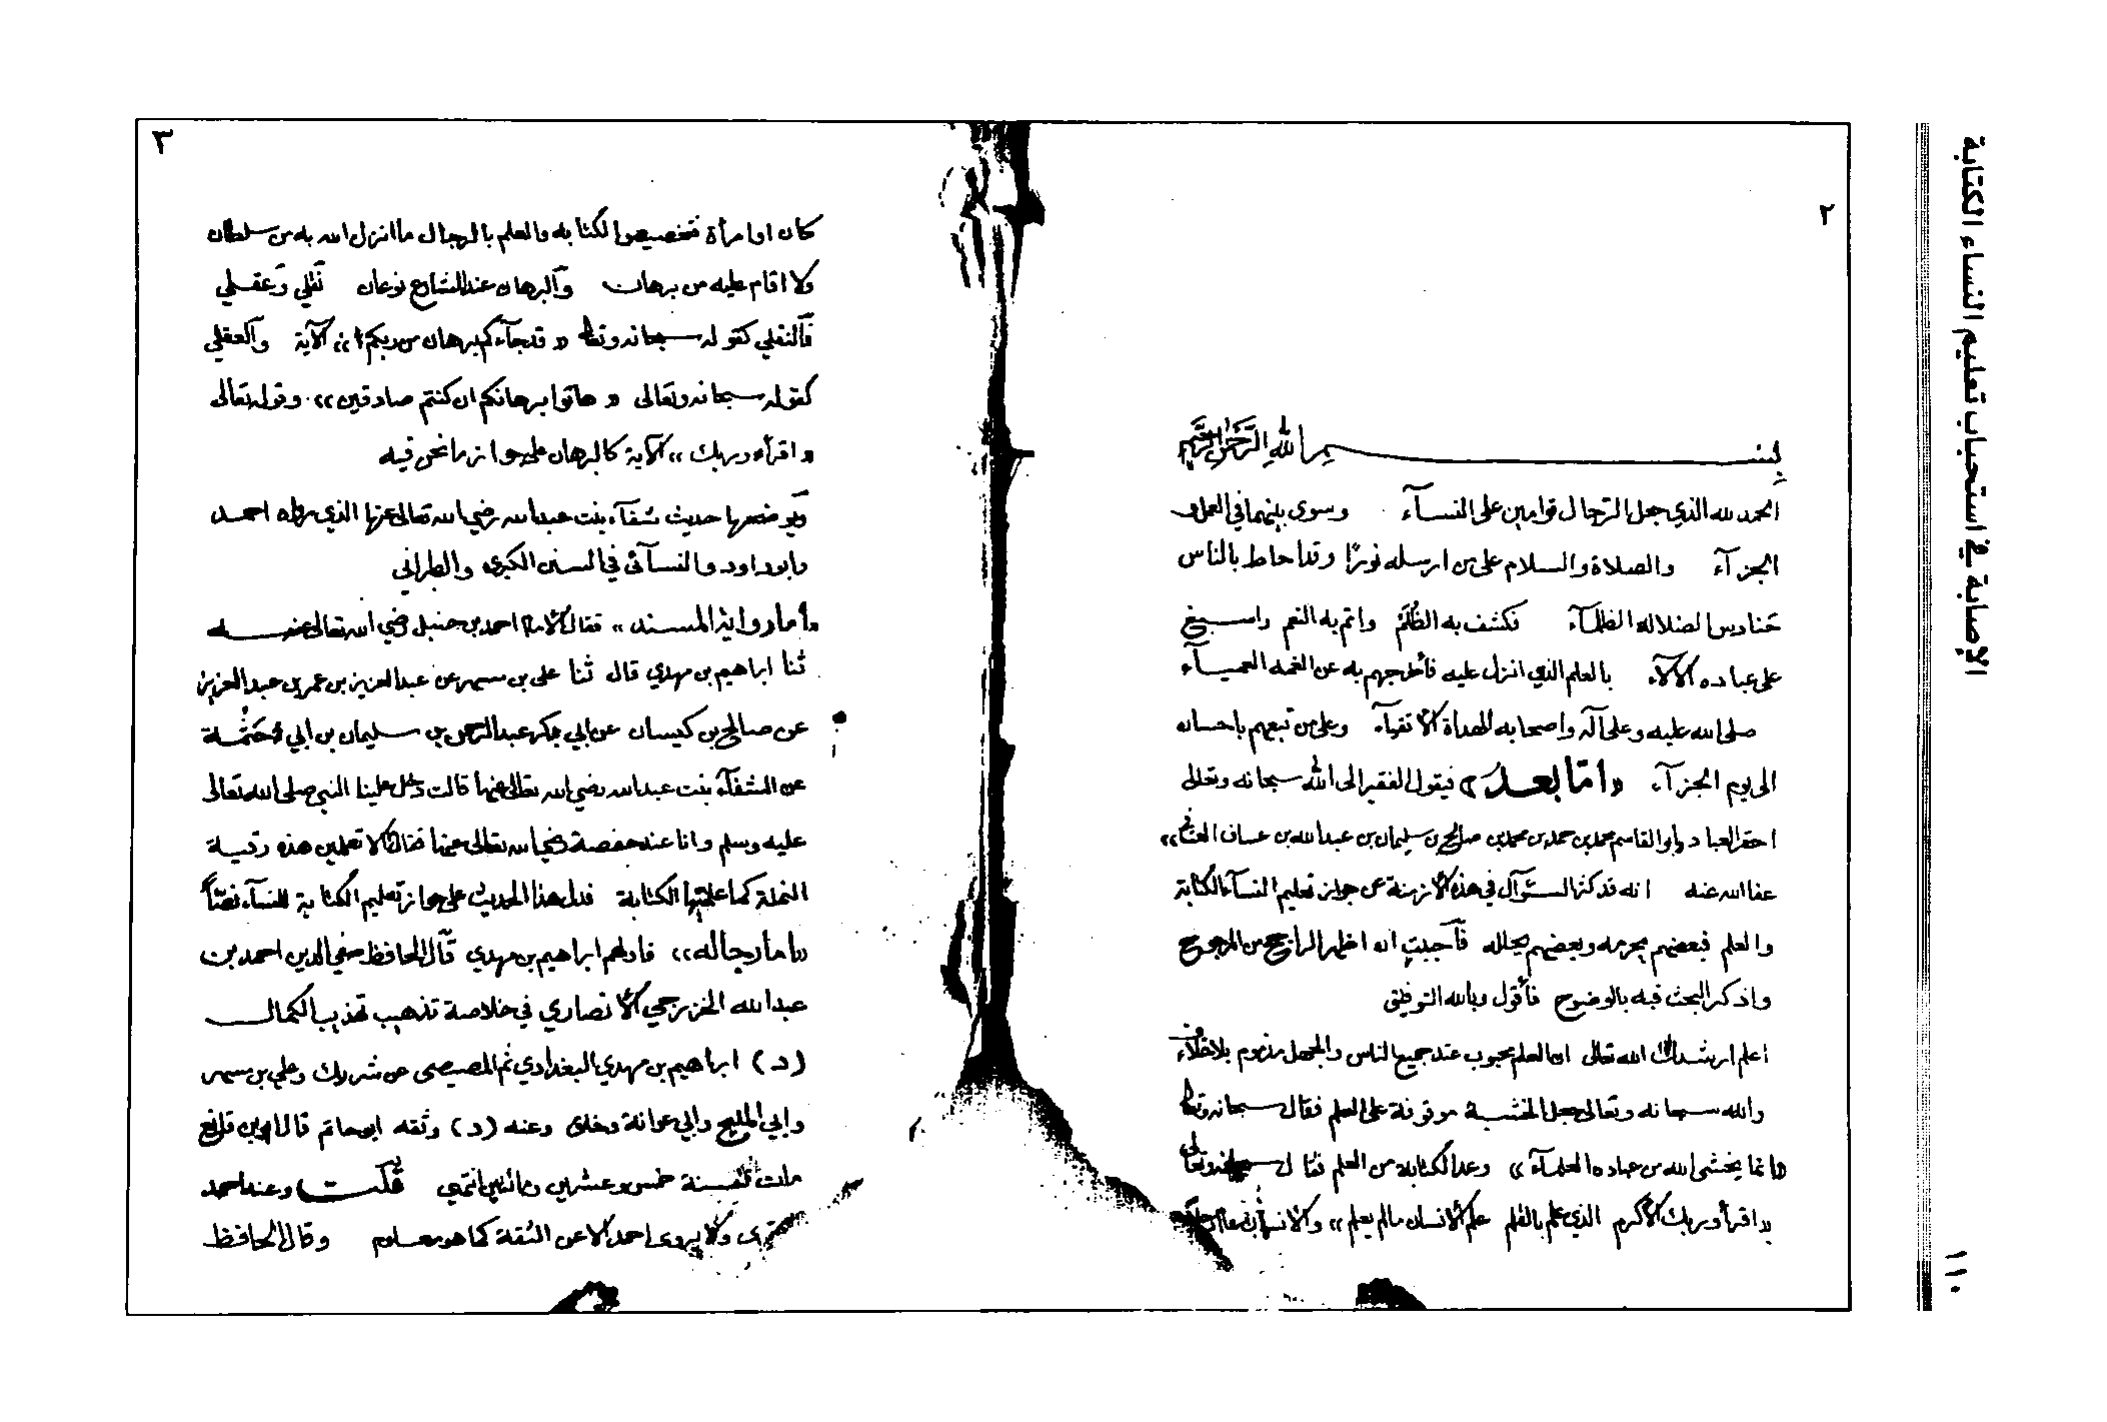 الإصابة في استحباب تعليم النساء الكتابة
١١٠
٢
بسم الله الرحمن الرحيم
الحمد لله الذي جعل الرجال قوامين على النسآء وسوى بينهما في العمل و
الجزآء والصلاة والسلام على من ارسله نورًا وقد احاط بالناس
حنادس الضلاله الظلمآء فكشف به الظُلَمْ واتم به النعم واسبغ
على عباده الآلآء بالعلم الذي انزل عليه فأخرجهم به عن الغمه العميآء
صلى الله عليه وعلى آله واصحابه الهداة الأتقيآء وعلى من تبعهم باحسان
الى يوم الجزآء «امّا بعد» فيقول الفقير الى الله سبحانه وتعالى
احقر العباد ابو القاسم محمد بن حمد بن محمد بن صالح بن سليمان بن عبدالله بن عساف
عفا الله عنه انه قد كثر السئوآل في هذه الأزمنة عن جواز تعليم النسآء الكتابة
والعلم فبعضهم يحرمه وبعضهم يحلله فأجبت ان اظهر الراجح من المرجوح
واذكر البحث فيه بالوضوح فأقول وبالله التوفيق
اعلم ارشدك الله تعالى ان العلم محبوب عند جميع الناس والجهل مذموم بلا خلاف
والله سبحانه وتعالى جعل الخشية موقوفة على العلم فقال سبحانه وتعالى
«انما يخشى الله من عباده العلمآء» وعد الكتابة من العلم فقال سبحانه وتعالى
«اقرأ وربك الأكرم الذي علم بالقلم علم الأنسان مالم يعلم» والأنسان
٣
كان او امرأة فتخصيص الكتابه والعلم بالرجال ما انزل الله به من سلطان
ولا اقام عليه من برهان والبرهان عند الشارع نوعان نقلي وعقلي
فالنقلي كقوله سبحانه وتعالى «قد جآءكم برهان من ربكم» الآية والعقلي
كقوله سبحانه وتعالى «هاتوا برهانكم ان كنتم صادقين» وقوله تعالى
«اقرأ وربك» الآية كالبرهان على جواز ما نحن فيه
ويوضحها حديث شفآء بنت عبدالله رضي الله تعالى عنها الذي رواه احمد
وابوداود والنسآئي في السنن الكبرى والطبراني
«أما رواية المسند» فقال الأمام احمد بن حنبل رضي الله تعالى عنه
ثنا ابراهيم بن مهدي قال ثنا على بن مسهر عن عبدالعزيز بن عمر بن عبدالعزيز
عن صالح بن كيسان عن ابي بكر عبدالرحمن بن سليمان بن ابي حَثْمة
عن الشفآء بنت عبدالله رضي الله تعالى عنها قالت دخل علينا النبي صلى الله تعالى
عليه وسلم وانا عند حفصة رضي الله تعالى عنها فقال ألا تعلمين هذه رقية
النملة كما علمتيها الكتابة فدل هذا الحديث على جواز تعليم الكتابة للنسآء نصّاً
«أما رجاله» فاولهم ابراهيم بن مهدي قال الحافظ صفي الدين احمد بن
عبدالله الخزرجي الأنصاري في خلاصة تذهيب تهذيب الكمال
(د) ابراهيم بن مهدي البغدادي ثم المصيصى عن شريك وعلي بن مسهر
وابي المليح وابي عوانة وخلق وعنه (د) وثقه ابو حاتم قال ابن قانع
مات سنة خمس وعشرين ومائتين انتهى قلت وعنه احمد
ولا يروى احمد الا عن الثقة كما هو معلوم وقال الحافظ